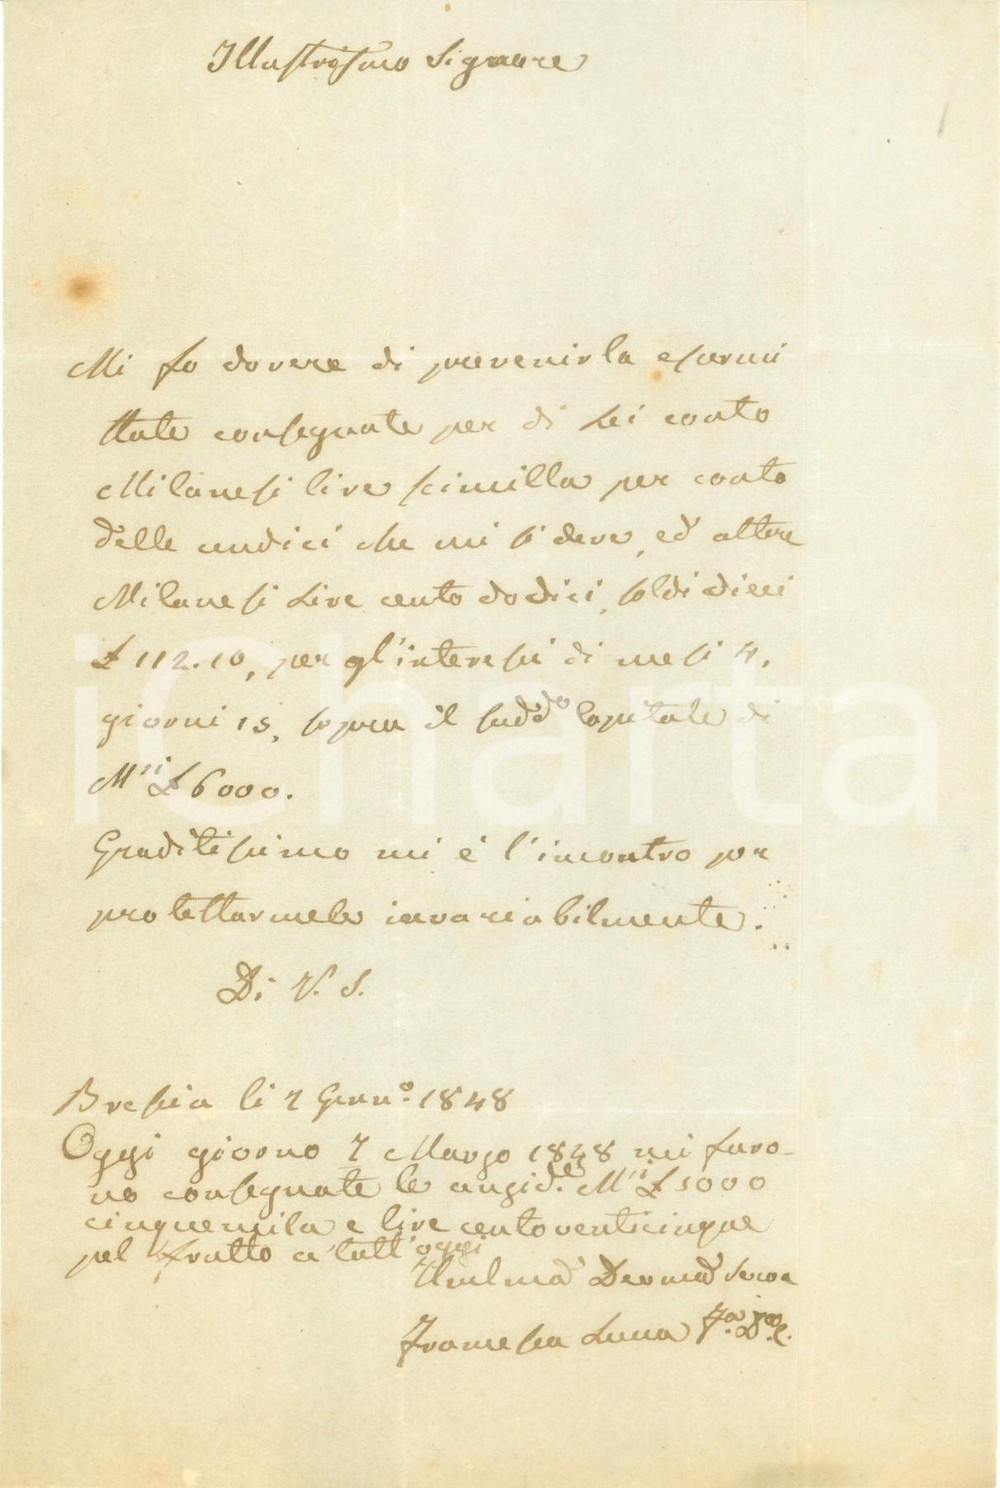 Illustrissimo Signore
Mi fo dovere di prevenirla essermi
state consegnate per di Lei conto
Milanesi lire seimilla per conto
delle undici che mi si deve, ed altere
Milanesi Lire cento dodici, soldi dieci
£ 112.10, per gl'interessi di mesi 4,
giorni 15, sopra il sudd.o Capitale di
M.ni £ 6000.
Graditissimo mi è l'incontro per
protettarmele invariabilmente.
Di V. S.
Brescia li 7 Genn.o 1848
Oggi giorno 7 Marzo 1848 mi furo-
no consegnate le M.ni £ 5000
cinquemila e lire centoventicinque
pel frutto a tutt'oggi
Serva
Francesca Luna
iCharta